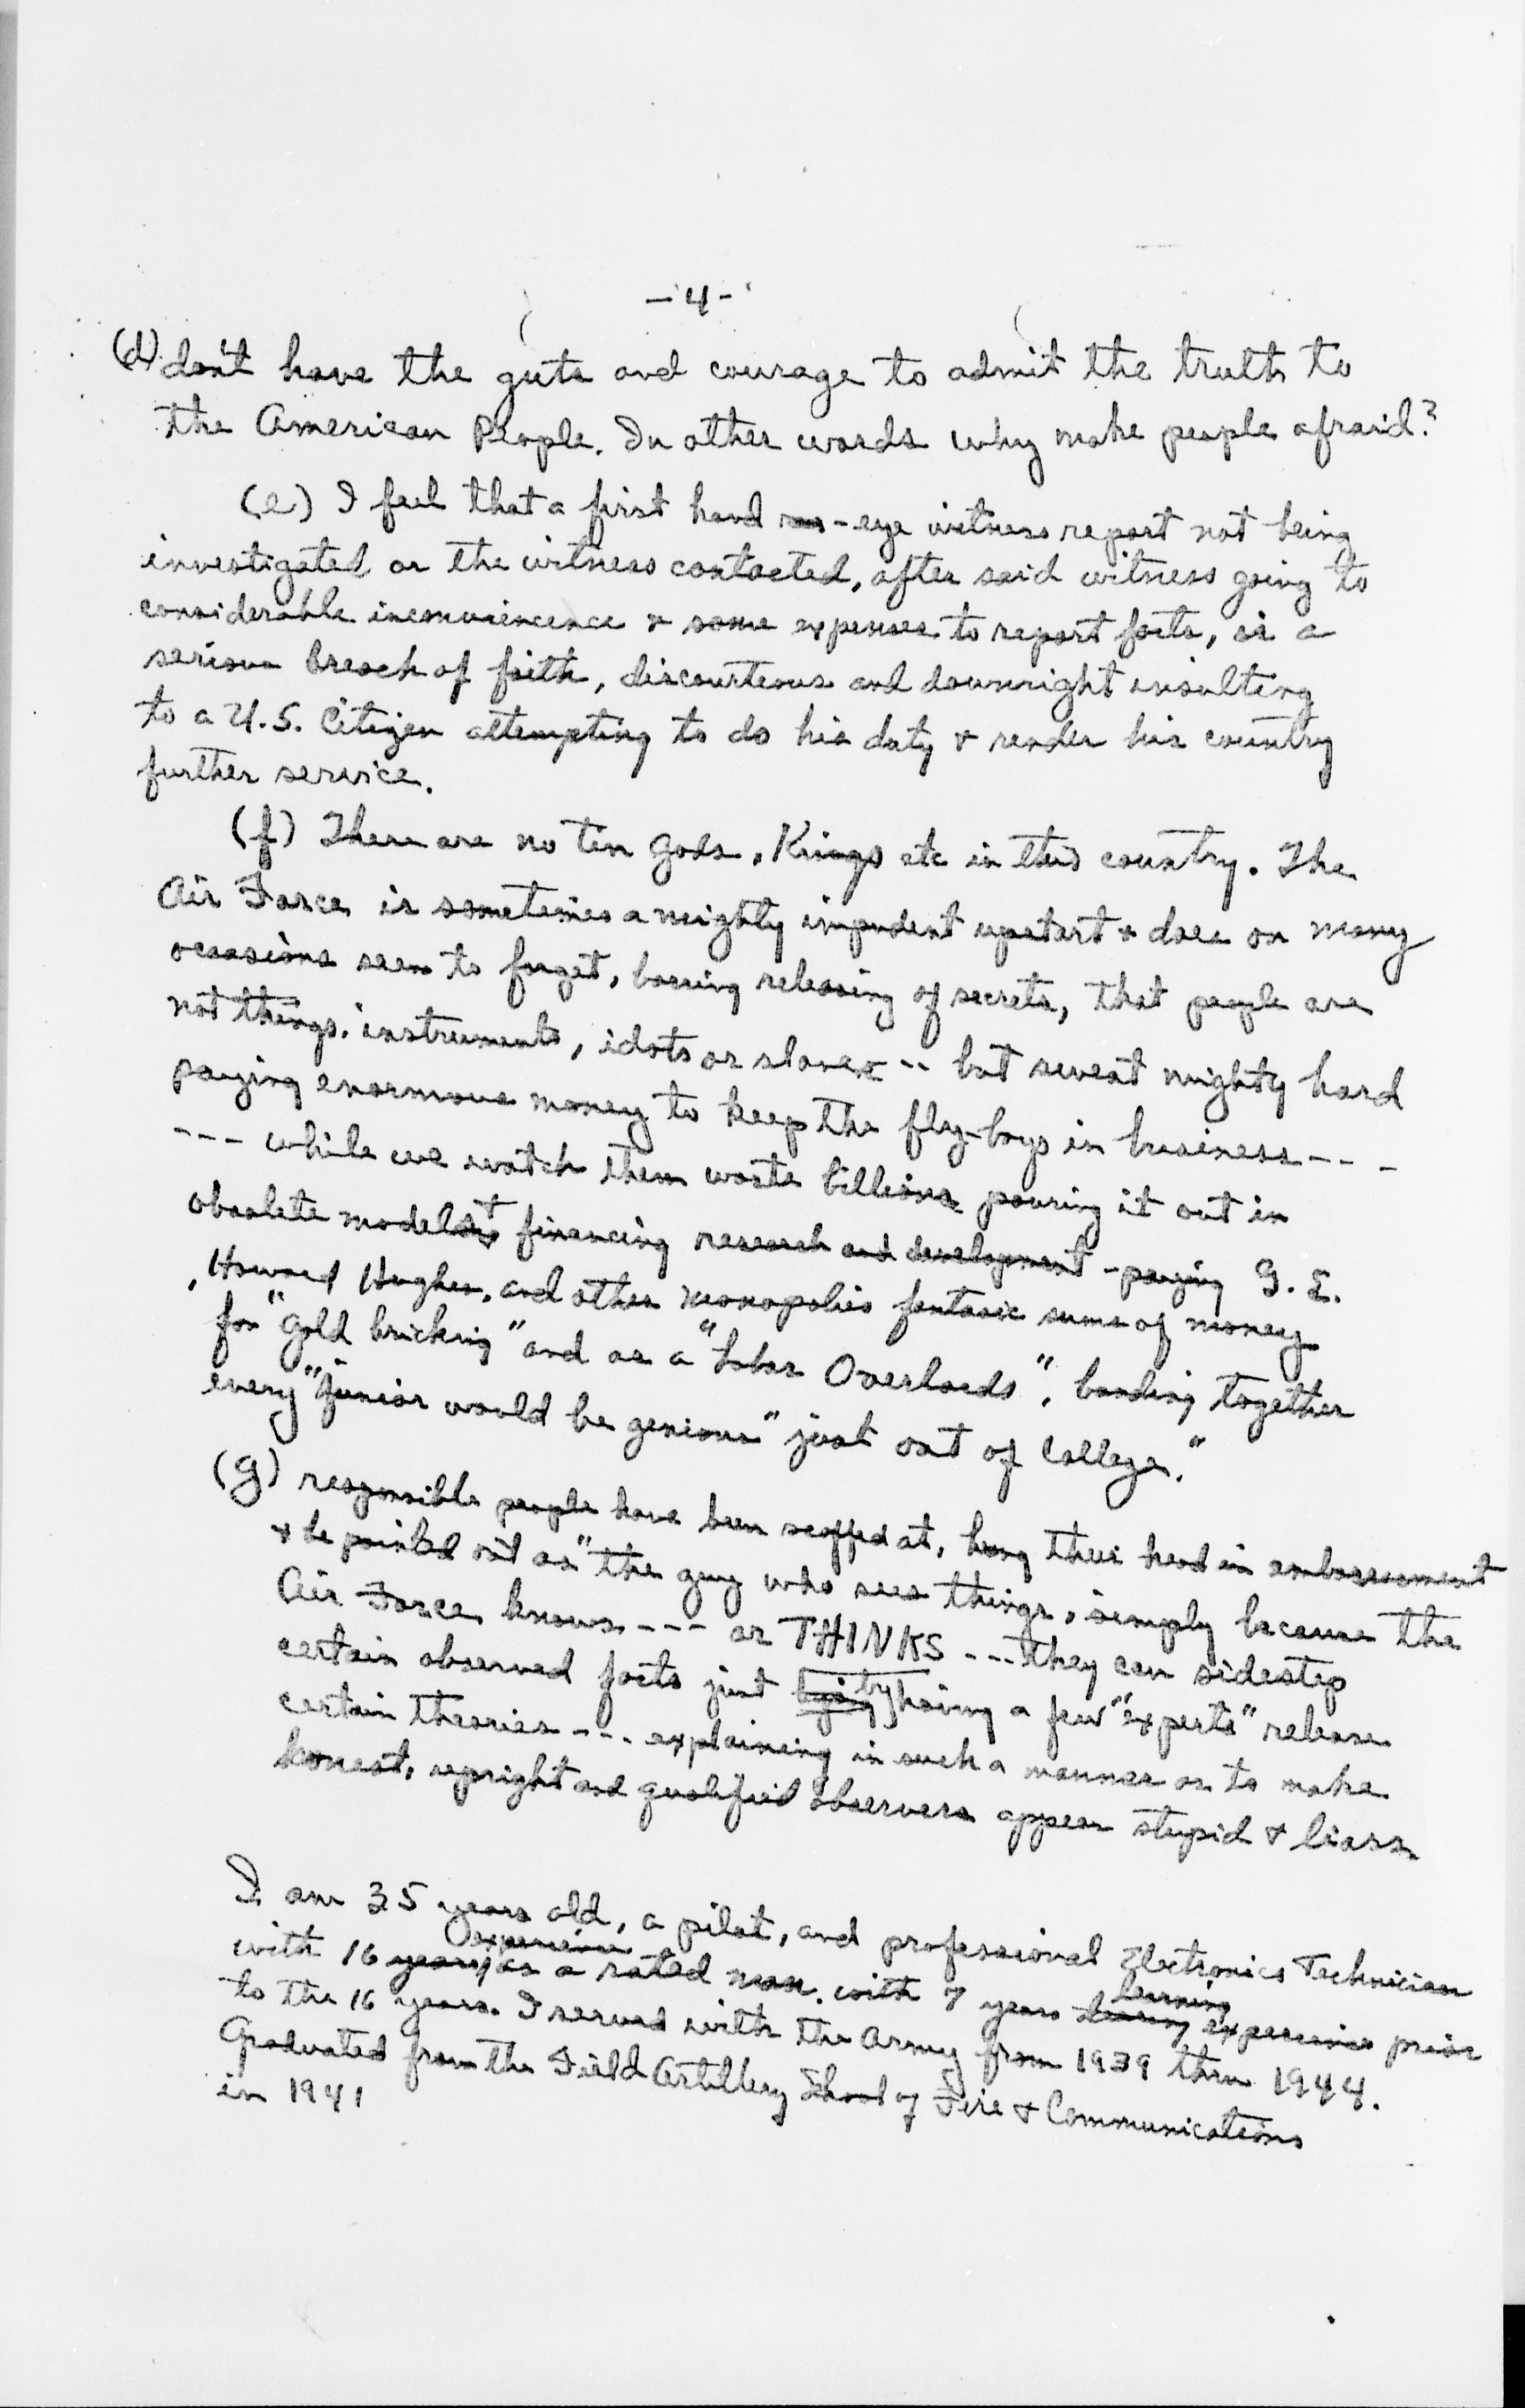 - 4 -
(d) don't have the guts and courage to admit the truth to
the American People. In other words why make people afraid?
(e) I feel that a first hand - eye witness report not being
investigated or the witness contacted, after said witness going to
considerable inconvenience & some expenses to report facts, is a
serious breach of faith, discourteous and downright insulting
to a U.S. Citizen attempting to do his duty & render his country
further service.
(f) There are no tin gods, Kings etc in this country. The
Air Force is sometimes a mighty impudent upstart & does on many
occasions seem to forget, barring releasing of secrets, that people are
not things, instruments, idots or slaves -- but sweat mighty hard
paying enormous money to keep the fly-boys in business - - -
- - - while we watch them waste billions pouring it out in
obsolete models & financing research and development - paying G. E.
, Howard Hughes, and other monopolies fantasic sums of money
for "gold bricking" and as a "Labor Overlords", banding together
every "junior would be genious" just out of College."
(g) responsible people have been scoffed at, hung their head in embarrassment
& be pointed out as "the guy who sees things, simply because the
Air Force knows - - - or THINKS - - - they can sidestep
certain observed facts just by having a few "experts" release
certain theories - - - explaining in such a manner as to make
honest, upright and qualified observers appear stupid & liars.
I am 35 years old, a pilot, and professional Electronics Technician
with 16 years experience as a rated man. with 7 years learning experience prior
to the 16 years. I served with the Army from 1939 thru 1944.
Graduated from the Field Artillery School of Fire & Communications
in 1941